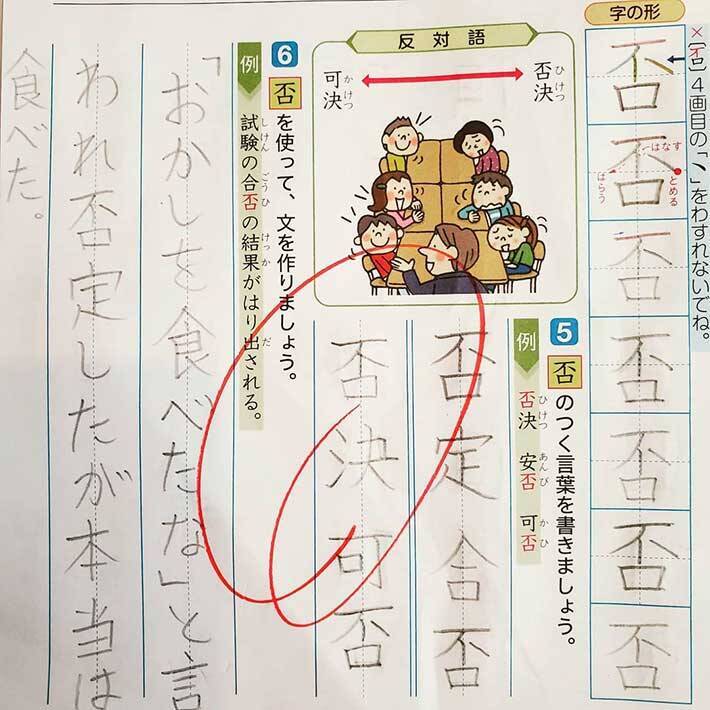 字の形
×[否]4画目の「丶」をわすれないでね。
否
否
はなす
とめる
はらう
否
否
否
否
否
5 否のつく言葉を書きましょう。
例 否決 安否 可否
ひけつ あんぴ かひ
否定 合否
否決 可否
反対語
否決
ひけつ
可決
かけつ
6 否を使って、文を作りましょう。
例 試験の合否の結果がはり出される。
しけん ごうひ けっか だ
「おかしを食べたな」と言
われ否定したが本当は
食べた。